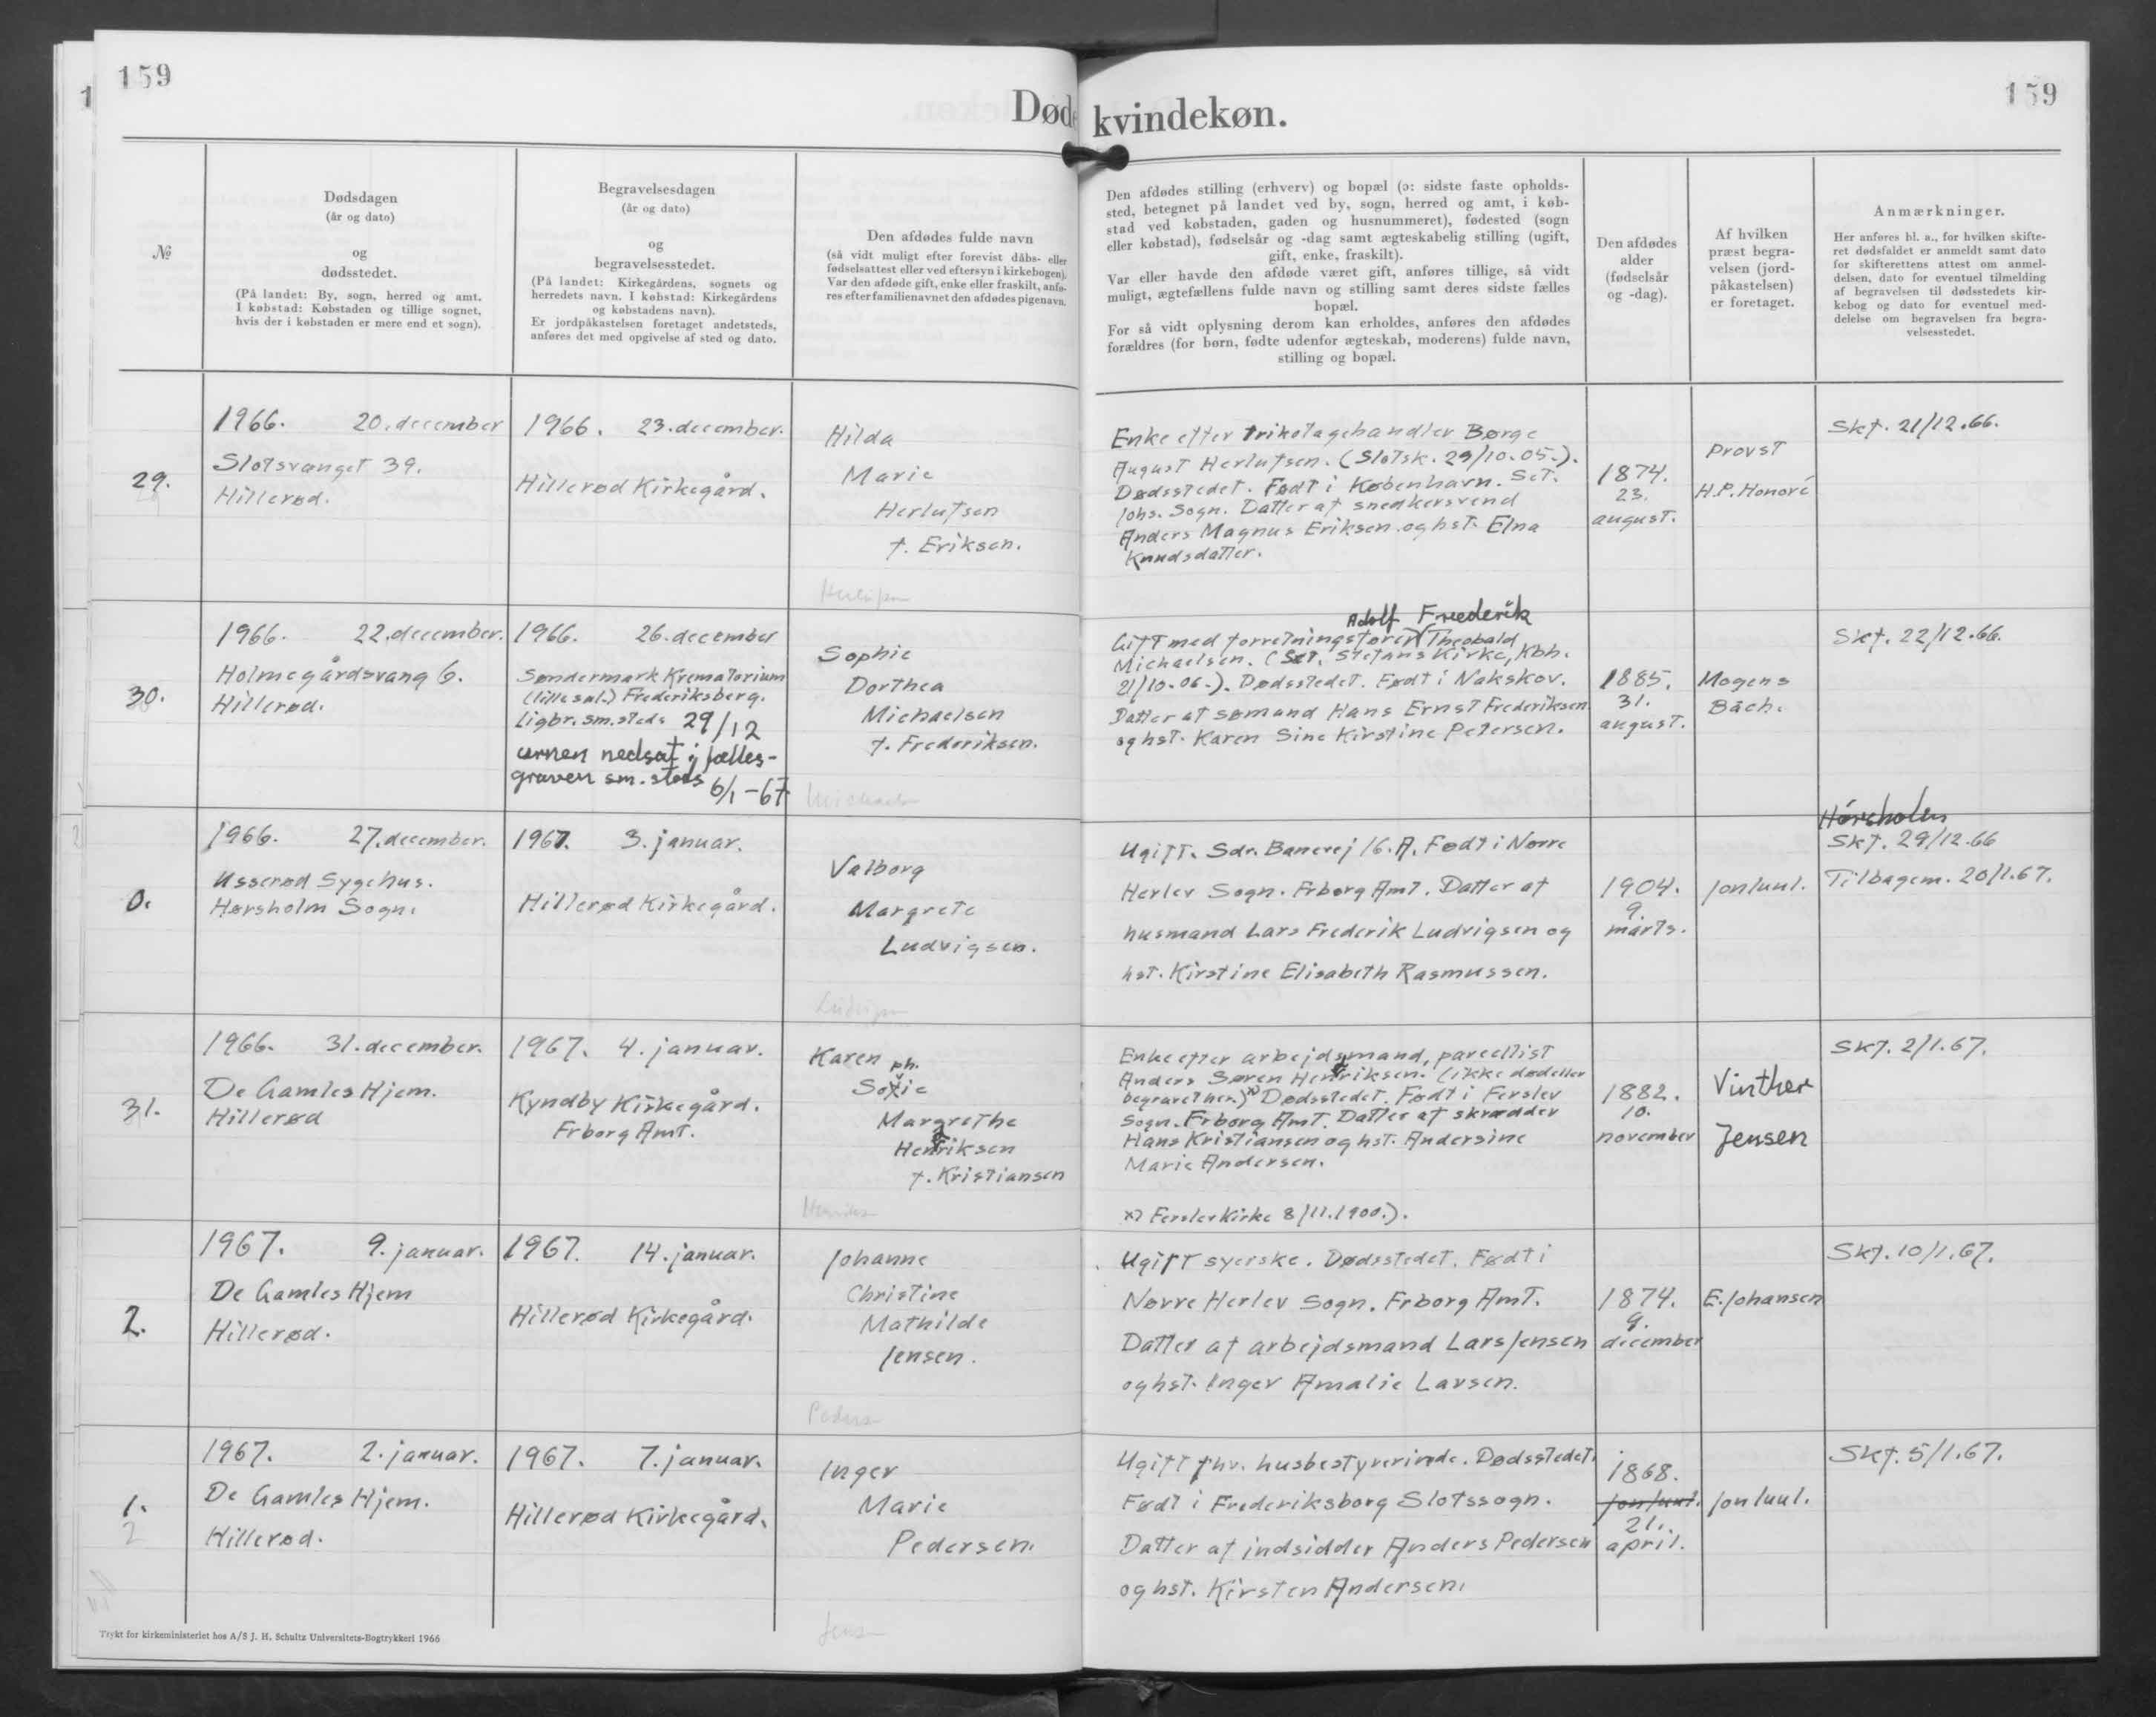 159
159
Døde kvindekøn.
№
Dødsdagen
(år og dato)
og
dødsstedet.
(På landet: By, sogn, herred og amt.
I købstad: Købstaden og tillige sognet,
hvis der i købstaden er mere end et sogn).
Begravelsesdagen
(år og dato)
og
begravelsesstedet.
(På landet: Kirkegårdens, sognets og
herredets navn. I købstad: Kirkegårdens
og købstadens navn).
Er jordpåkastelsen foretaget andetsteds,
anføres det med opgivelse af sted og dato.
Den afdødes fulde navn
(så vidt muligt efter forevist dåbs- eller
fødselsattest eller ved eftersyn i kirkebogen).
Var den afdøde gift, enke eller fraskilt, anfø-
res efter familienavnet den afdødes pigenavn.
Den afdødes stilling (erhverv) og bopæl (ɔ: sidste faste opholds-
sted, betegnet på landet ved by, sogn, herred og amt, i køb-
stad ved købstaden, gaden og husnummeret), fødested (sogn
eller købstad), fødselsår og -dag samt ægteskabelig stilling (ugift,
gift, enke, fraskilt).
Var eller havde den afdøde været gift, anføres tillige, så vidt
muligt, ægtefællens fulde navn og stilling samt deres sidste fælles
bopæl.
For så vidt oplysning derom kan erholdes, anføres den afdødes
forældres (for børn, fødte udenfor ægteskab, moderens) fulde navn,
stilling og bopæl.
Den afdødes
alder
(fødselsår
og -dag).
Af hvilken
præst begra-
velsen (jord-
påkastelsen)
er foretaget.
Anmærkninger.
Her anføres bl. a., for hvilken skifte-
ret dødsfaldet er anmeldt samt dato
for skifterettens attest om anmel-
delsen, dato for eventuel tilmelding
af begravelsen til dødsstedets kir-
kebog og dato for eventuel med-
delelse om begravelsen fra begra-
velsesstedet.
29.
1966. 20. december
Slotsvænget 39.
Hillerød.
1966. 23. december.
Hillerød Kirkegård.
Hilda
Marie
Herlufsen
f. Eriksen.
Enke efter trikotagehandler Børge
August Herlufsen. (Slotsk. 29/10.05.).
Dødsstedet. Født i København. Sct.
Johs. Sogn. Datter af snedkersvend
Anders Magnus Eriksen og hst. Elna
Knudsdatter.
1874.
23.
august.
Provst
H.P. Honoré
Skf. 21/12.66.
Herlufsen
30.
1966. 22. december.
Holmegårdsvang 6.
Hillerød.
1966. 26. december
Søndermark Krematorium
(lille sal.) Frederiksberg.
Ligbr. sm. steds 29/12
urnen nedsat i fælles-
graven sm. steds 6/1-67
Sophie
Dorthea
Michaelsen
f. Frederiksen.
Adolf Freederik
Gift med forretningsfører Theobald
Michaelsen. (Sct. Stefans Kirke, Kbh.
21/10.06.). Dødsstedet. Født i Nakskov.
Datter af sømand Hans Ernst Frederiksen
og hst. Karen Sine Kirstine Petersen.
1885.
31.
august.
Mogens
Bäch.
Skf. 22/12.66.
Michaelsen
0.
1966. 27. december.
Usserød Sygehus.
Hørsholm Sogn.
1967. 3. januar.
Hillerød Kirkegård.
Valborg
Margrete
Ludvigsen.
Ugift. Sdr. Banevej 16. A. Født i Nørre
Herlev Sogn. Frborg Amt. Datter af
husmand Lars Frederik Ludvigsen og
hst. Kirstine Elisabeth Rasmussen.
1904.
9.
marts.
Jon Juul.
Hørsholm
Skf. 29/12.66
Tilbagem. 20/1.67.
Ludvigsen
31.
1966. 31. december.
De Gamles Hjem.
Hillerød
1967. 4. januar.
Kyndby Kirkegård.
Frborg Amt.
Karen
ph.
Sofie
Margrethe
Henriksen
f. Kristiansen
Enke efter arbejdsmand, parcellist
Anders Søren Henriksen. (ikke død eller
begravet her.) x) Dødsstedet. Født i Ferslev
Sogn. Frborg Amt. Datter af skrædder
Hans Kristiansen og hst. Andersine
Marie Andersen.
x) Ferslev Kirke 8/11.1900.).
1882.
10.
november
Vinther
Jensen
Skf. 2/1.67.
Henriksen
2.
1967. 9. januar.
De Gamles Hjem
Hillerød.
1967. 14. januar.
Hillerød Kirkegård.
Johanne
Christine
Mathilde
Jensen.
Ugift syerske. Dødsstedet. Født i
Nørre Herlev Sogn. Frborg Amt.
Datter af arbejdsmand Lars Jensen
og hst. Inger Amalie Larsen.
1874.
9.
december
E. Johansen
Skf. 10/1.67.
Pedersen
1.
2
1967. 2. januar.
De Gamles Hjem.
Hillerød.
1967. 7. januar.
Hillerød Kirkegård.
Inger
Marie
Pedersen.
Ugift fhv. husbestyrerinde. Dødsstedet.
Født i Frederiksborg Slotssogn.
Datter af indsidder Anders Pedersen
og hst. Kirsten Andersen.
1868.
Jon Juul.
21.
april.
Jon Juul.
Skf. 5/1.67.
Jensen
Trykt for kirkeministeriet hos A/S J. H. Schultz Universitets-Bogtrykkeri 1966